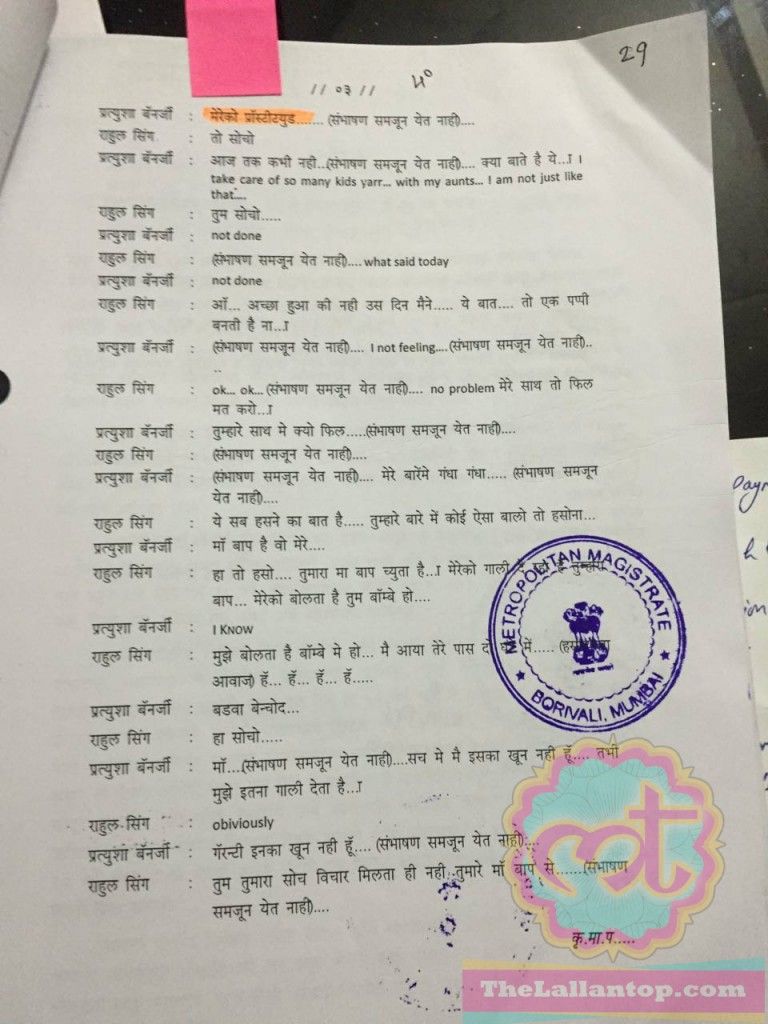 29
// ०३ //
प्रत्युशा बॅनर्जी : मेरेको प्रॉस्टीटयुड....... (संभाषण समजून येत नाही)....
राहुल सिंग : तो सोचो
प्रत्युशा बॅनर्जी : आज तक कभी नही...(संभाषण समजून येत नाही).... क्या बाते है ये...ा I
take care of so many kids yarr... with my aunts... I am not just like
that....
राहुल सिंग : तुम सोचो.....
प्रत्युशा बॅनर्जी : not done
राहुल सिंग : (संभाषण समजून येत नाही).... what said today
प्रत्युशा बॅनर्जी : not done
राहुल सिंग : ऑ... अच्छा हुआ की नही उस दिन मैने..... ये बात.... तो एक पप्पी
बनती है ना...ा
प्रत्युशा बॅनर्जी : (संभाषण समजून येत नाही).... I not feeling....(संभाषण समजून येत नाही)..
..
राहुल सिंग : ok... ok...(संभाषण समजून येत नाही).... no problem मेरे साथ तो फिल
मत करो...ा
प्रत्युशा बॅनर्जी : तुम्हारे साथ मे क्यो फिल.....(संभाषण समजून येत नाही)....
राहुल सिंग : (संभाषण समजून येत नाही)....
प्रत्युशा बॅनर्जी : (संभाषण समजून येत नाही).... मेरे बारेंमे गंधा गंधा..... (संभाषण समजून
येत नाही)....
राहुल सिंग : ये सब हसने का बात है..... तुम्हारे बारे में कोई ऐसा बालो तो हसोना...
प्रत्युशा बॅनर्जी : मॉ बाप है वो मेरे....
राहुल सिंग : हा तो हसो.... तुमारा मा बाप च्युता है...ा मेरेको गाली दे रहा है तुम्हारा
बाप... मेरेको बोलता है तुम बॉम्बे हो....
प्रत्युशा बॅनर्जी : I KNOW
राहुल सिंग : मुझे बोलता है बॉम्बे मे हो... मै आया तेरे पास दो में.....
आवाज) हॅ... हॅ... हॅ... हॅ.....
प्रत्युशा बॅनर्जी : बडवा बेन्चोद...
राहुल सिंग : हा सोचो.....
प्रत्युशा बॅनर्जी : मॉ...(संभाषण समजून येत नाही)....सच मे मै इसका खून नही हूँ.... तभी
मुझे इतना गाली देता है...ा
राहुल सिंग : obiviously
प्रत्युशा बॅनर्जी : गॅरन्टी इनका खून नही हूँ.... (संभाषण समजून येत नाही)...
राहुल सिंग : तुम तुमारा सोच विचार मिलता ही नही तुमारे मॉ बाप से.......(संभाषण
समजून येत नाही)....
कृ.मा.प.....
METROPOLITAN MAGISTRATE
BORIVALI, MUMBAI
TheLallantop.com